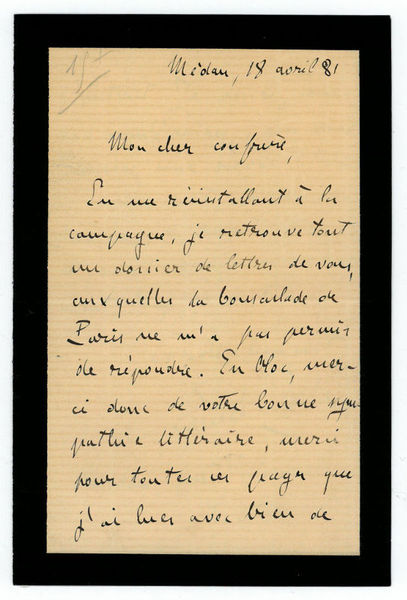 Médan, 18 avril 81
Mon cher confrère,
En me réinstallant à la
campagne, je retrouve tout
un dossier de lettres de vous,
auxquelles la bousculade de
Paris ne m'a pas permis
de répondre. En bloc, mer-
ci donc de votre bonne sym-
pathie littéraire, merci
pour toutes ces pages que
j'ai lues avec bien de